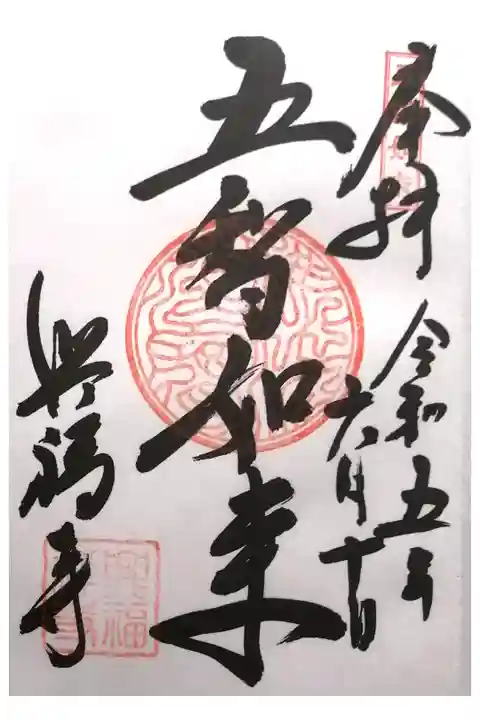 奉拝
令和五年
六月十日
五智如来
興福寺
興福